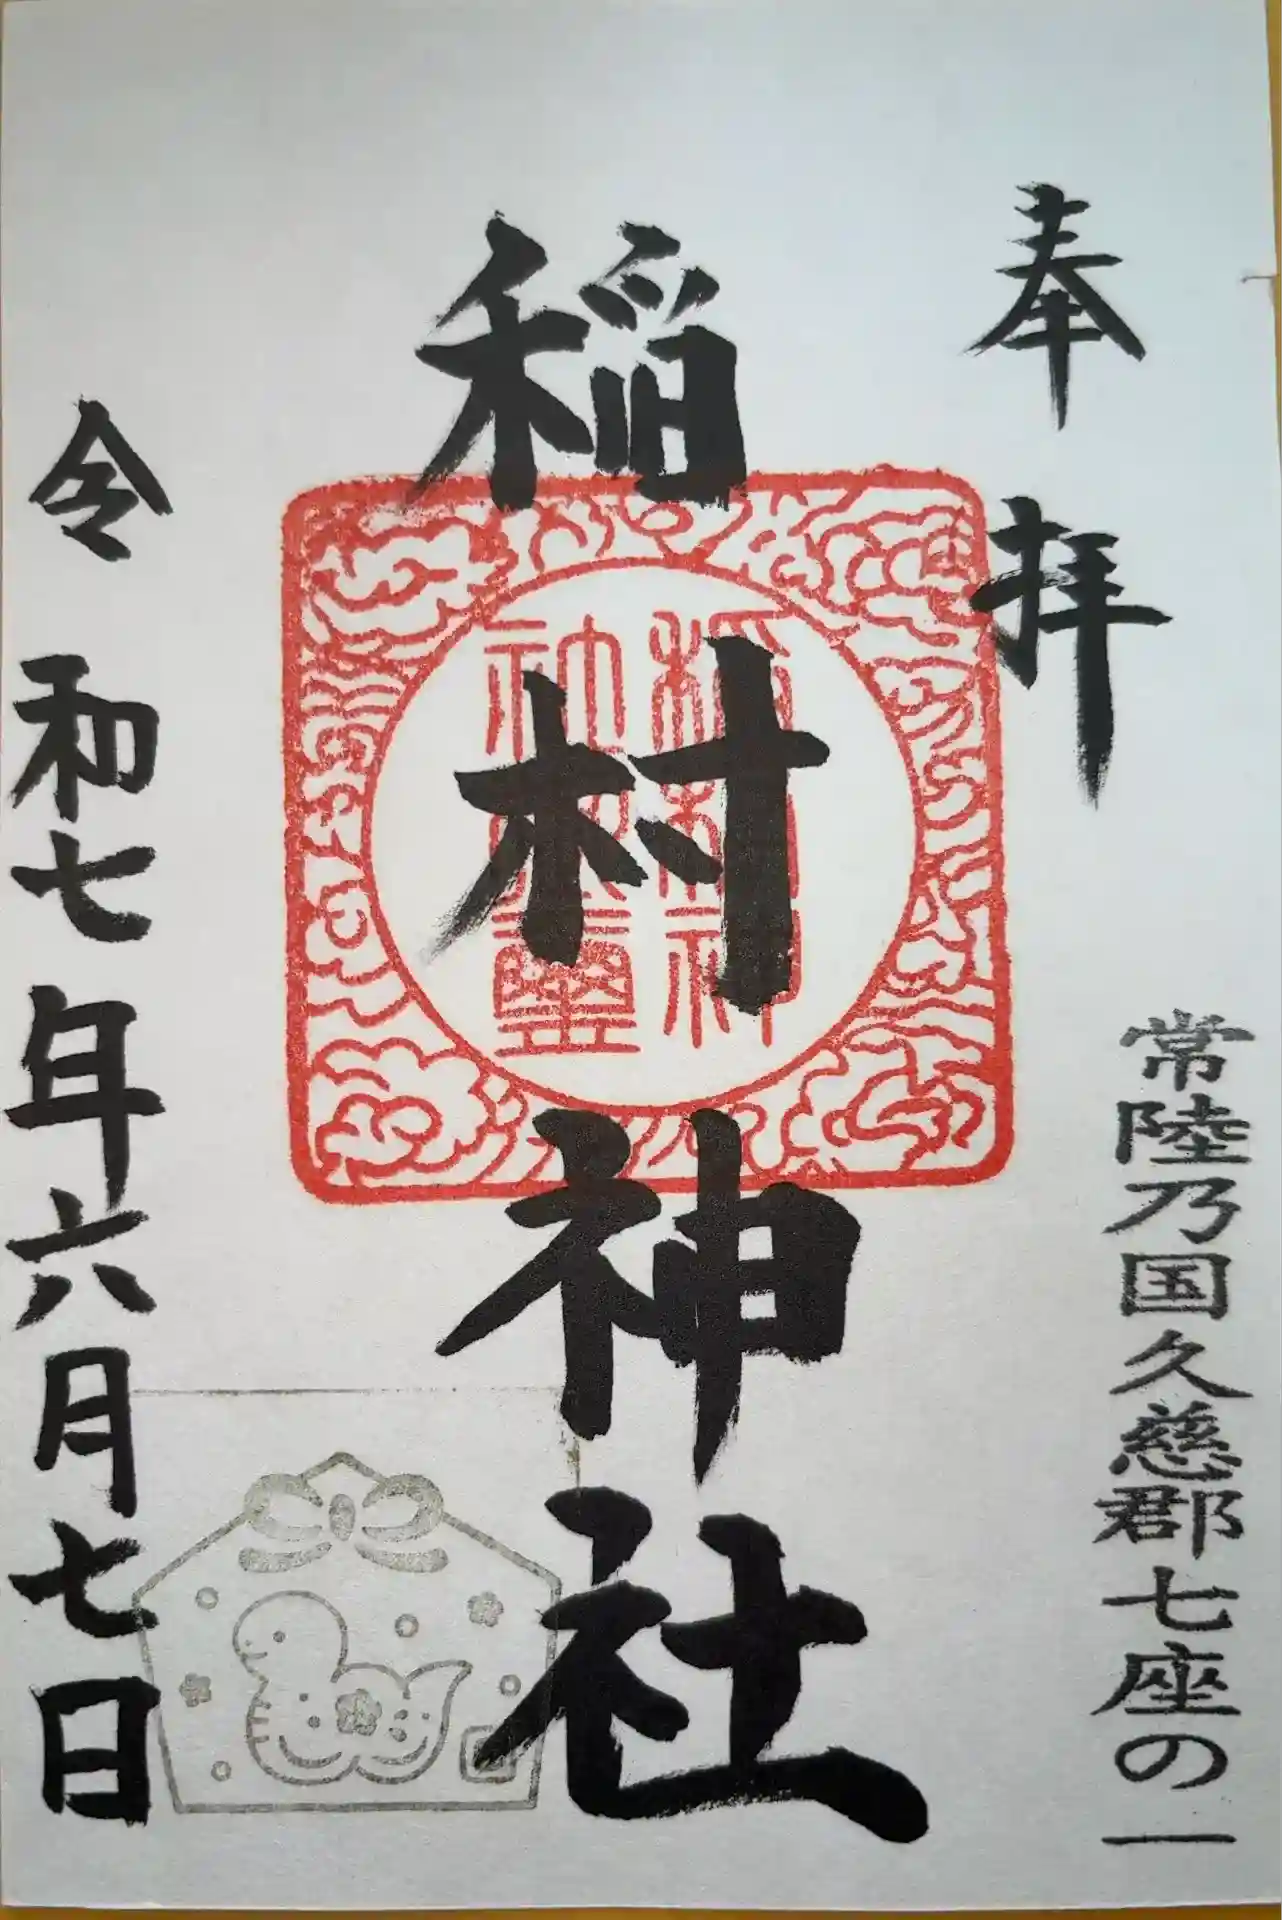 奉拝
常陸乃国久慈郡七座の一
稲村神社
令和七年六月七日